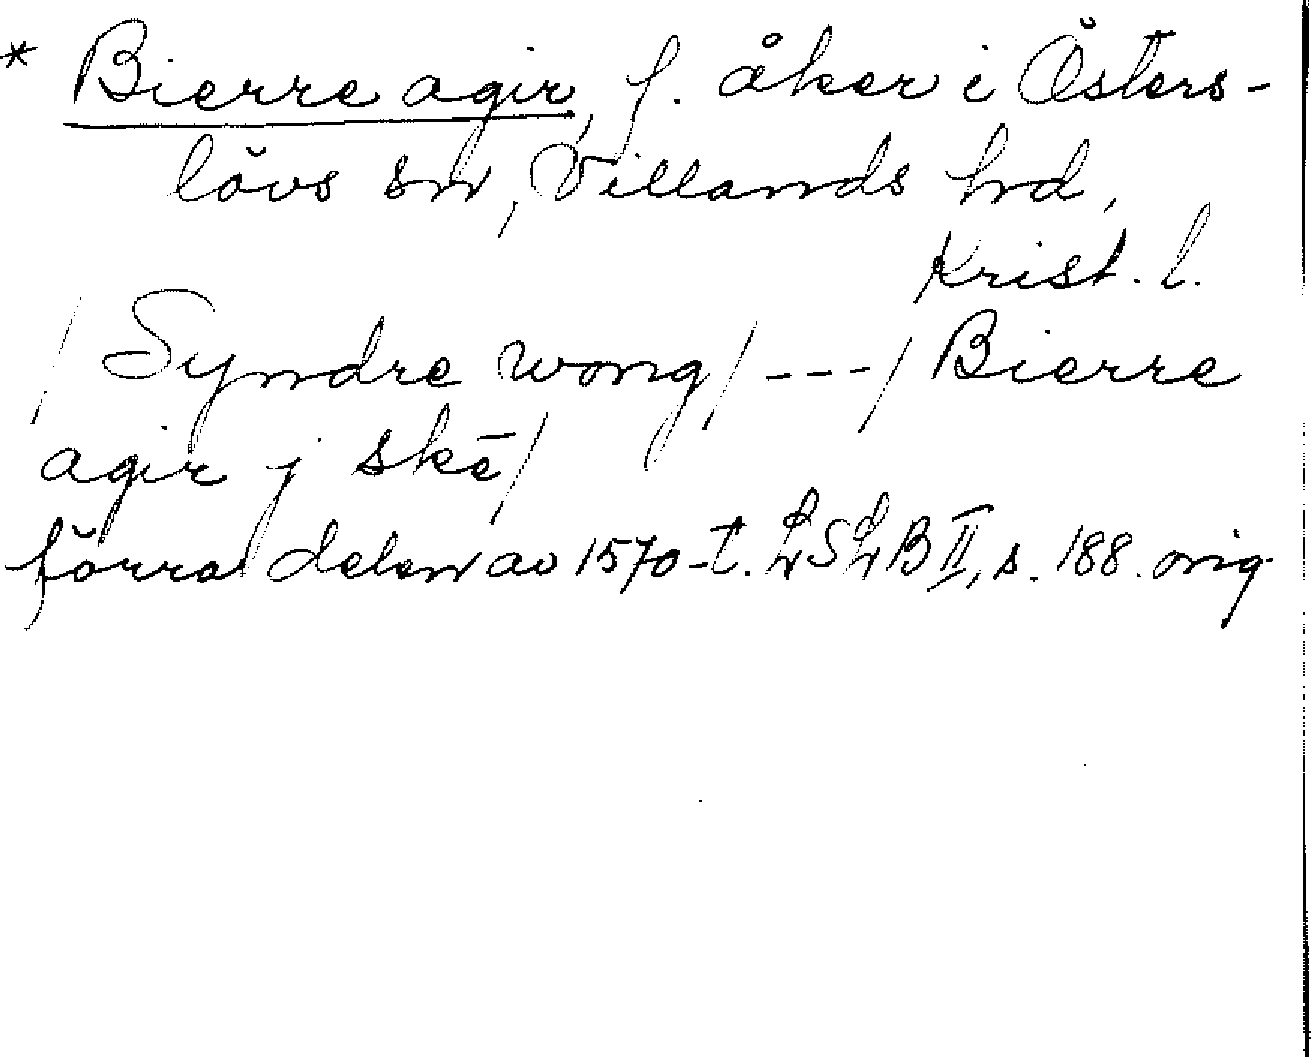 * Bierre agir, f. åker i Östers-
lövs sn, Villands hd,
Krist. l.
/ Syndre wong / --- / Bierre
agir j skē /
förra delen av 1570-t. LSLB II, s. 188. orig.